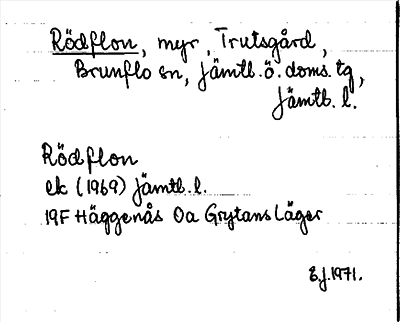 Rödflon, myr, Trutsgård,
Brunflo sn, Jämtl. ö. doms. tg,
Jämtl. l.
Rödflon
ek (1969) Jämtl. l.
19F Häggenås 0a Grytans Läger
E.J. 1971.